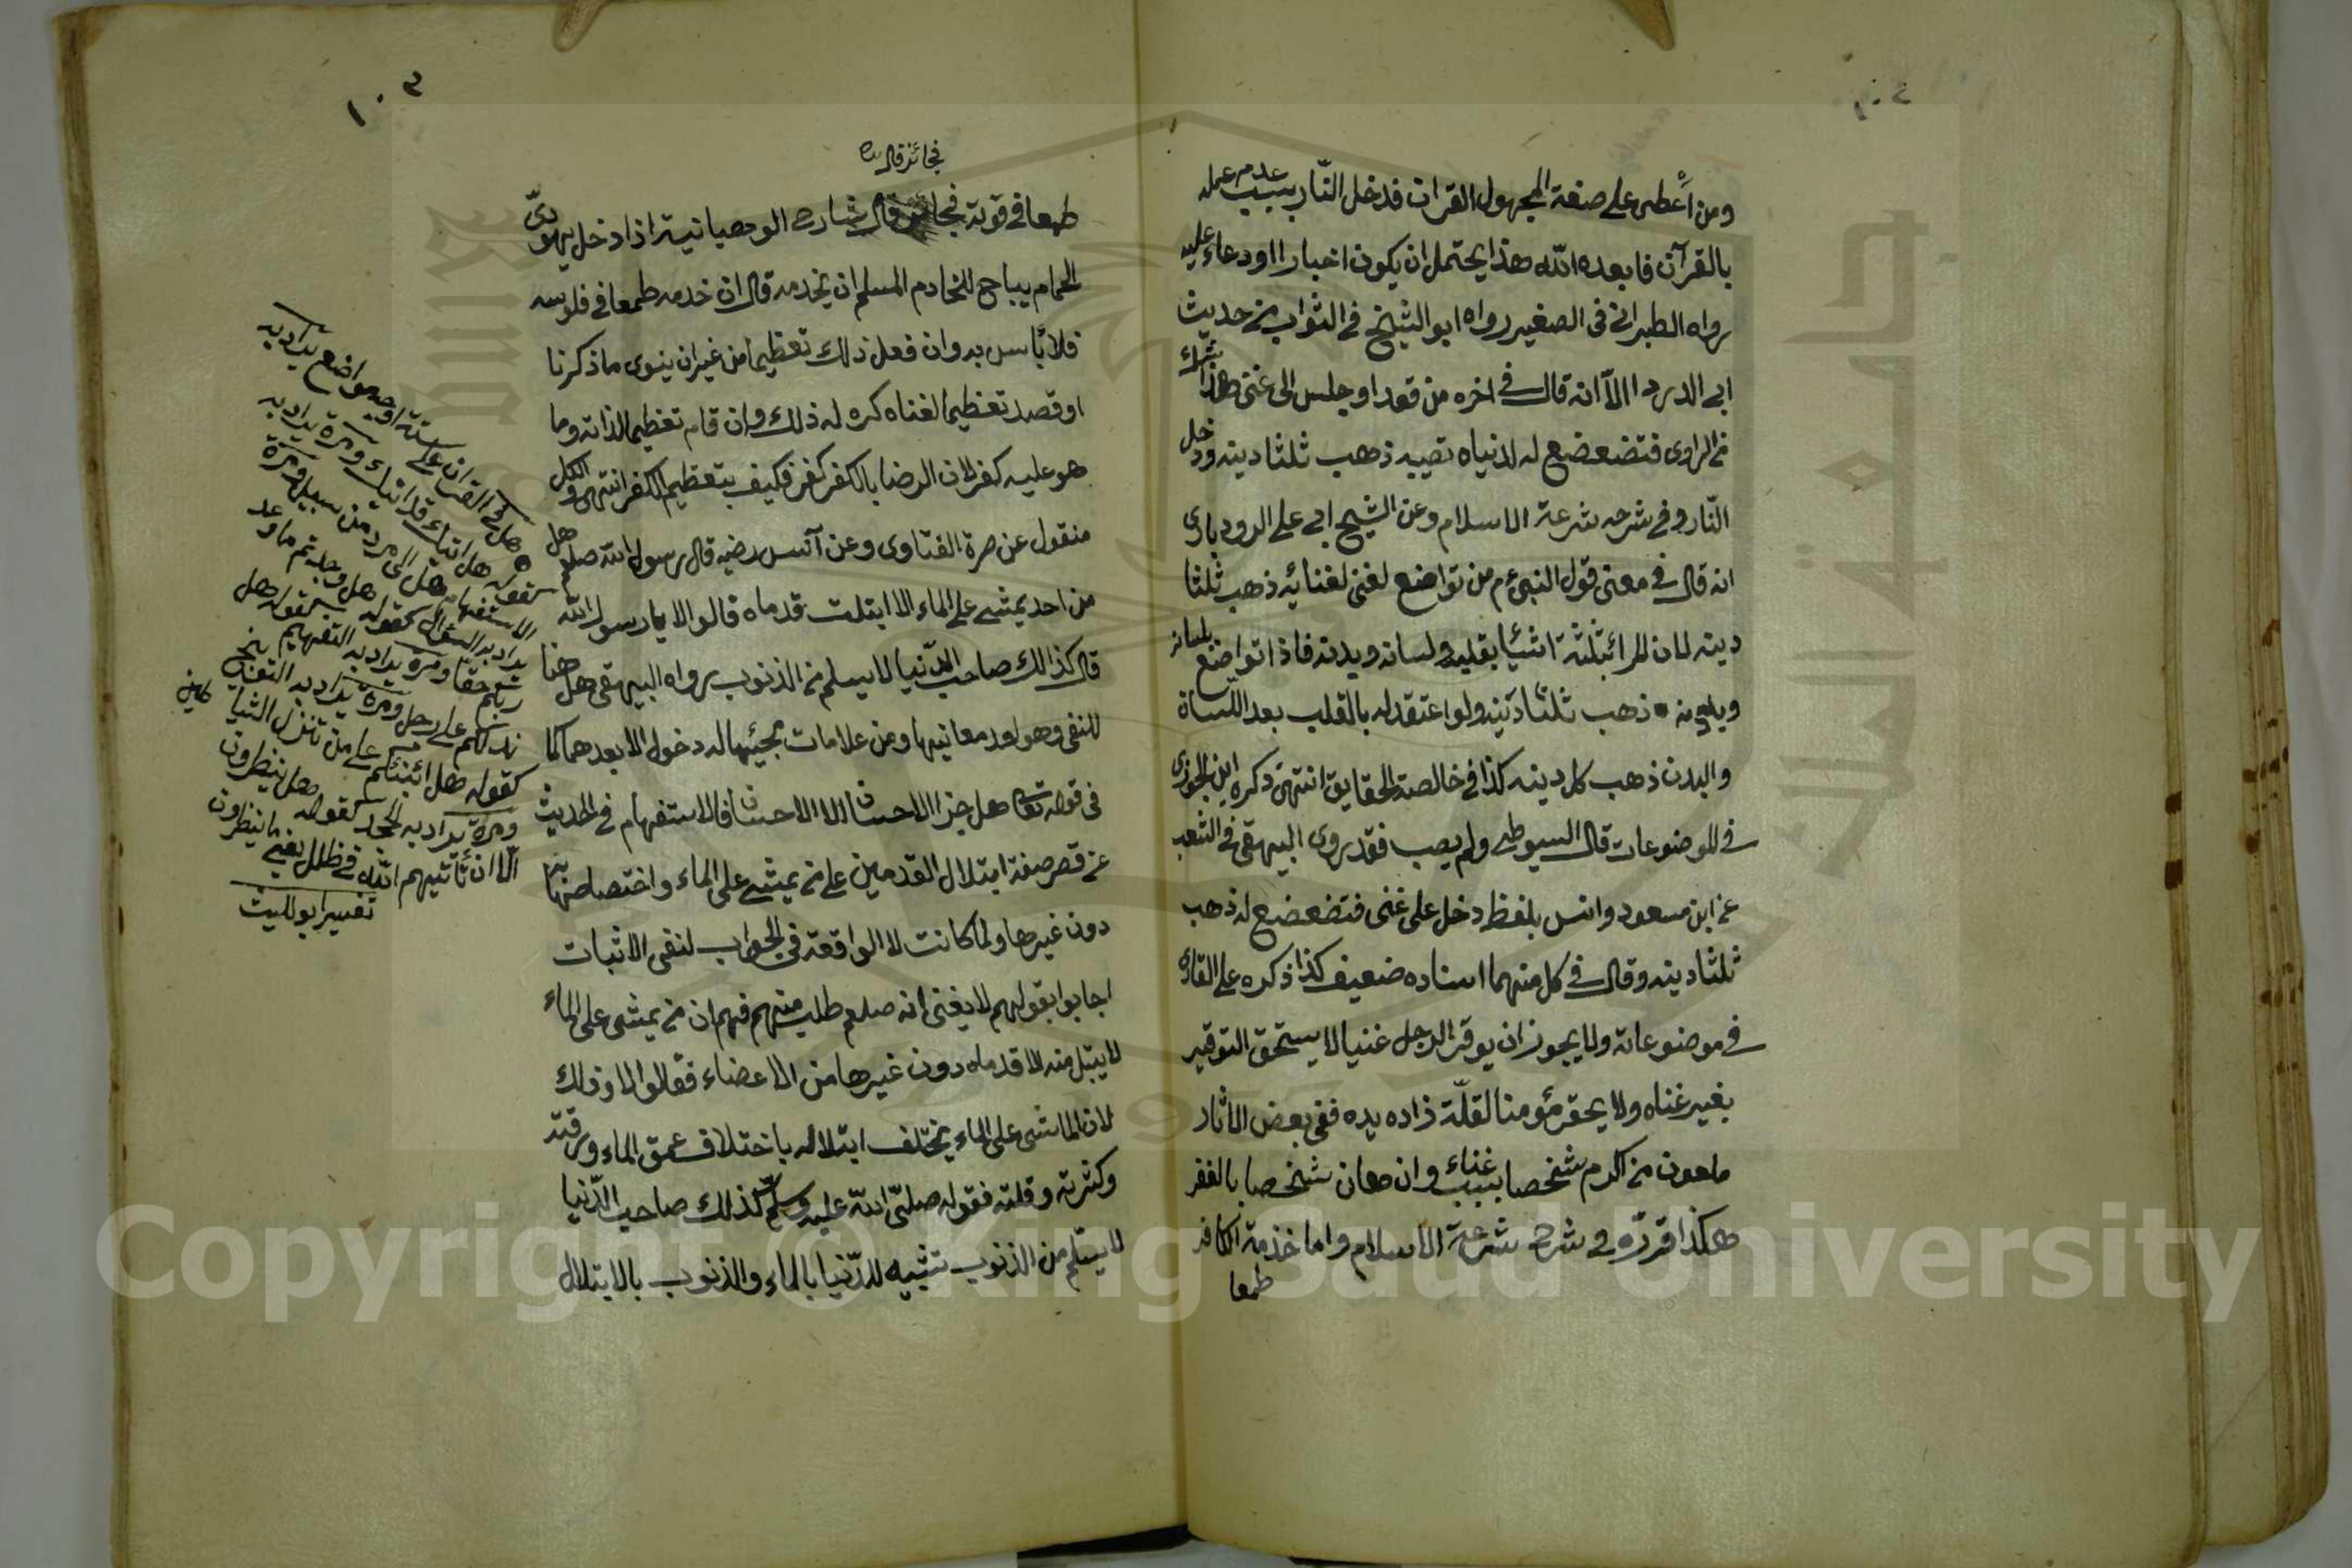 ومن أعطى على صفة المجهول القران فدخل النّار بسبب عدم عمله
بالقرآن فابعده الله هذا يحتمل ان يكون اخبارا اودعاء عليه
رواه الطبرانى فى الصغير رواه ابو الشيخ فى الثواب من حديث
ابى الدردا الا انه قال فى اخره من قعد او جلس الى غنى هذا شك
من الراوى فتضعضع له لدنياه تصيبه ذهب ثلثا دينه ودخل
النّار وفى شرحه شرعة الاسلام وعن الشيخ ابى على الرودبارى
انه قال فى معنى قول النبى عم من تواضع لغنى لغنائه ذهب ثلثا
دينه لان المرا بثلثة اشيا بقلبه ولسانه وبدنه فاذا تواضع بلسانه
وبدنه ذهب ثلثا دينه ولو اعتقد له بالقلب بعد اللسان
والبدن ذهب كل دينه كذا فى خالصة الحقايق انتهى ذكره ابن الجوزى
فى الموضوعات قال السيوطى ولم يصب فقد روى البيهقى فى الشعب
عن ابن مسعود وانس بلفظ دخل على غنى فتضعضع له ذهب
ثلثا دينه وقال فى كل منهما اسناده ضعيف كذا ذكره على القارى
فى موضوعاته ولا يجوز ان يوقر الرجل غنيا لا يستحق التوقير
بغير غناه ولا يحقر مؤمنا لقلّة ذاده يده ففى بعض الاثار
ملعون من اكرم شخصا بسبب غناء وان هان شخصا بالفقر
هكذا قرّره فى شرح شرعة الاسلام واما خذمة الكافر
طمعا
١٠٣
فجائز قال
طمعا فى قوته فجائز قال شارح الوهبانية اذا دخل يهودىّ
الحمام يباح للخادم المسلم ان يخدمه قال ان خدمه طمعا فى فلوسه
فلا بأس به وان فعل ذلك تعظيما من غير ان ينوى ما ذكرنا
او قصد تعظيما لغناه كره له ذلك وان قام تعظيما لذاته وما
هو عليه كفر لان الرضا بالكفر كفر فكيف بتعظيم الكفر انتهى والكل
منقول عن صرة الفتاوى وعن آنس رضيه قال رسول الله صلعم هل
من احد يمشى على الماء الا ابتلت قدماه قالوا لا يا رسول الله
قال كذالك صاحب الدّنيا لا يسلم من الذنوب رواه البيهقى هل هنا
للنفى وهو احد معانيها ومن علامات مجيئها له دخول الا بعدها كما
فى قوله تعا هل جزا الاحسان الا الاحسان فالاستفهام فى الحديث
عن قصر صفة ابتلال القدمين على من يمشى على الماء واختصاصها به
دون غيرها ولما كانت لا الواقعة فى الجواب لنفى الاثبات
اجابوا بقولهم لا يعنى انه صلعم طلب منهم فهم ان من يمشى على الماء
لا يبتل منه الا قدماه دون غيرها من الاعضاء فقالوا لا وذلك
لان الماشى على الماء يختلف ابتلاله باختلاف عمق الماء ورقته
وكثرته وقلته فقوله صلىّ الله عليه وسلّم كذلك صاحب الدّنيا
لا يسلم من الذنوب تشبيه للدّنيا بالماء والذنوب بالابتلال
هل فى القران على ستة اوجه مواضع يراد به
كقوله هل اتيك قد اتيك ومرة يراد به
الاستفهام هل الى مرد من سبيل ومرّة
يراد به السؤال كقوله هل وجدتم ما وعد
ربكم حقا ومرة يراد به التفهيم كقوله هل
ندلكم على رجل ومرة يراد به
كقوله هل انبئكم على من تنزل الشيا طين
ومرة يراد به الجحد كقوله هل ينظرون
الّا ان يأتيهم الله فى ظلل يعنى ما ينظرون
تفسير ابو الليث
Copyright © King Saud University